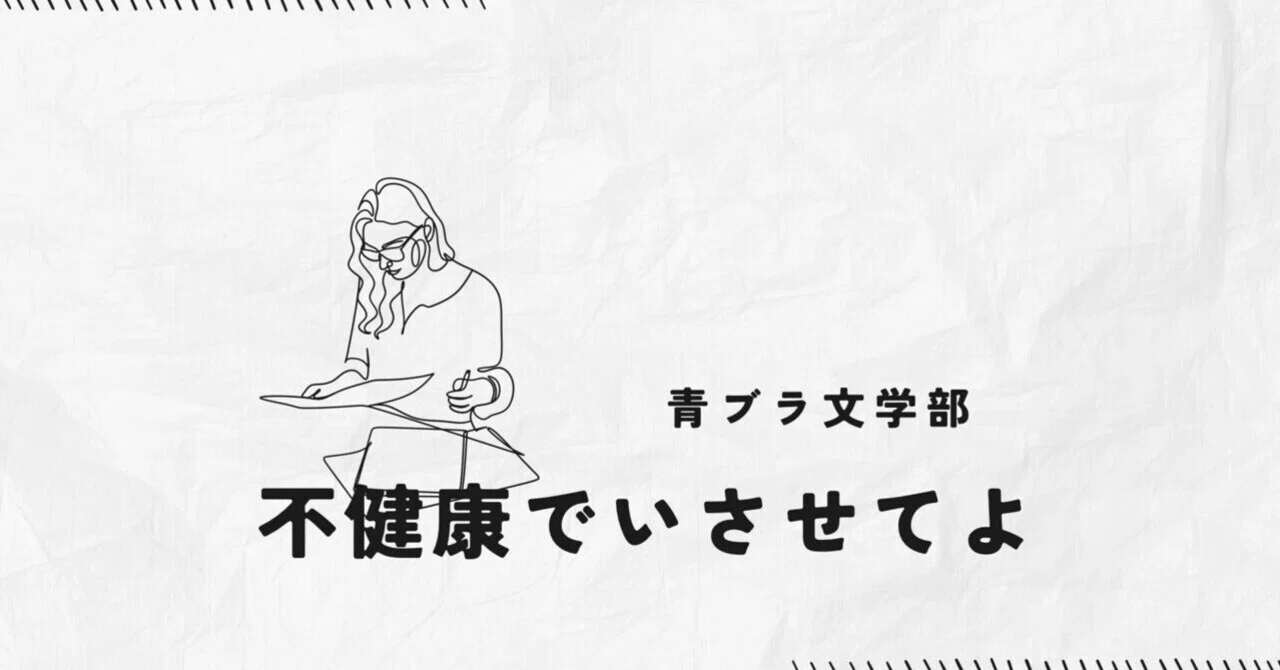 青ブラ文学部
不健康でいさせてよ